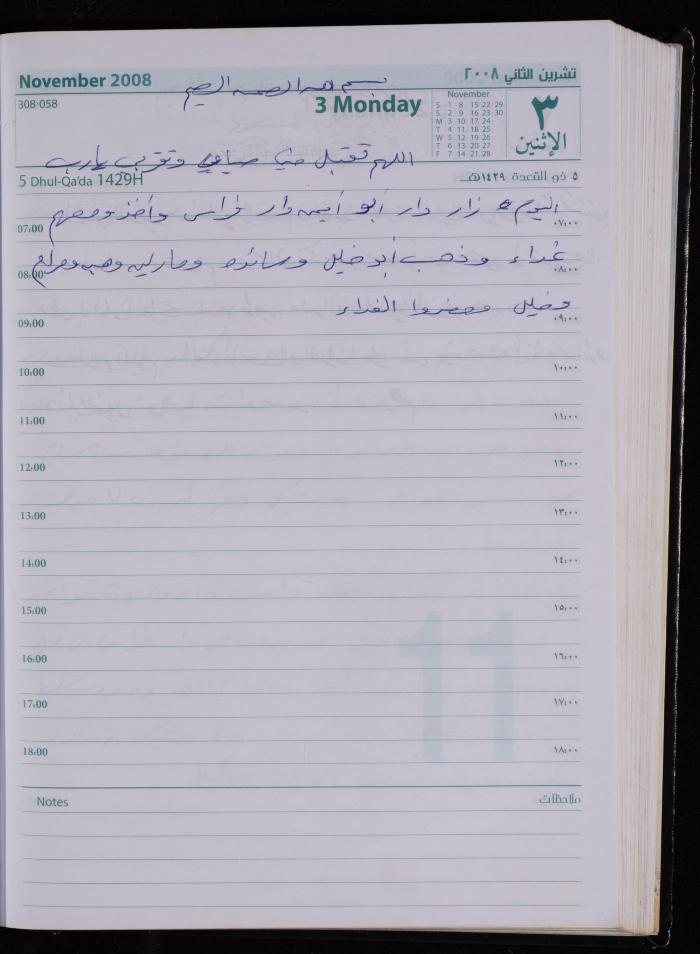 November 2008
تشرين الثاني ٢٠٠٨
بسم الله الرحمن الرحيم
308-058
3 Monday
November
S 1 8 15 22 29
S 2 9 16 23 30
M 3 10 17 24
T 4 11 18 25
W 5 12 19 26
T 6 13 20 27
F 7 14 21 28
٣
الإثنين
اللهم تقبل منا صيامي وتقربي يا رب
5 Dhul-Qa'da 1429H
٥ ذو القعدة ١٤٢٩هـ
اليوم زار دار أبو أيمن دار فراس وأخذو معهم
07:00 ٠٧:٠٠
غداء وذهب أبو خليل وسائده ومارلين وهبه ومرام
08:00 ٠٨:٠٠
وخليل وحضروا الغداء
09:00 ٠٩:٠٠
10:00 ١٠:٠٠
11:00 ١١:٠٠
12:00 ١٢:٠٠
13:00 ١٣:٠٠
14:00 ١٤:٠٠
15:00 ١٥:٠٠
16:00 ١٦:٠٠
17:00 ١٧:٠٠
18:00 ١٨:٠٠
11
Notes
ملاحظات